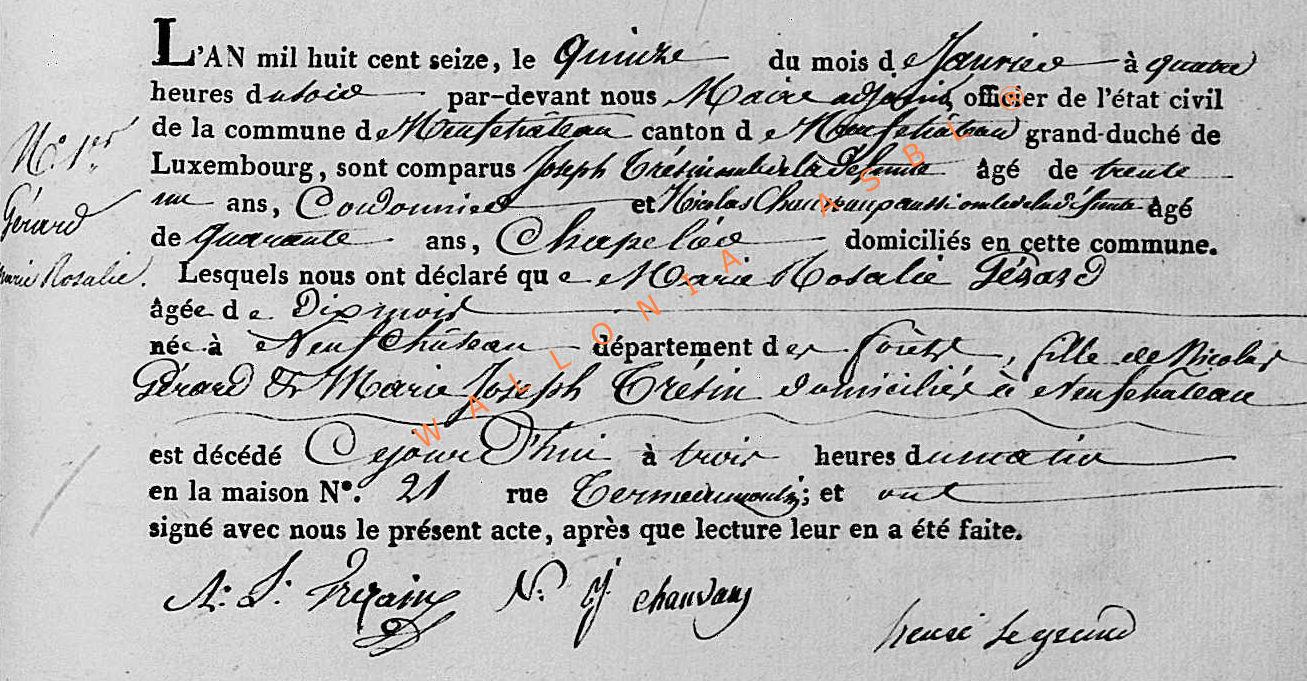 L'AN mil huit cent seize, le quinze du mois de Janvier à quatre
heures du soir par-devant nous Maire adjoint, officier de l'état civil
de la commune de Neufchâteau canton de Neufchâteau grand-duché de
Luxembourg, sont comparus Joseph Trésin oncle de la défunte âgé de trente
un ans, Cordonnier et Nicolas aussi oncle de la défunte âgé
de quarante ans, Chapelier domiciliés en cette commune.
Lesquels nous ont déclaré que Marie Rosalie Gérard
âgée de Dix mois
née à Neufchâteau département des forêts, fille de Nicolas
Gérard & Marie Joseph Trésin domiciliés à Neufchateau
est décédé Cejourd'hui à trois heures du matin
en la maison N°. 21 rue ; et ont
signé avec nous le présent acte, après que lecture leur en a été faite.
N° 1er
Gérard
Marie Rosalie.
N. J. chauvaux
henri le grand
WALLONIA ASBL ©